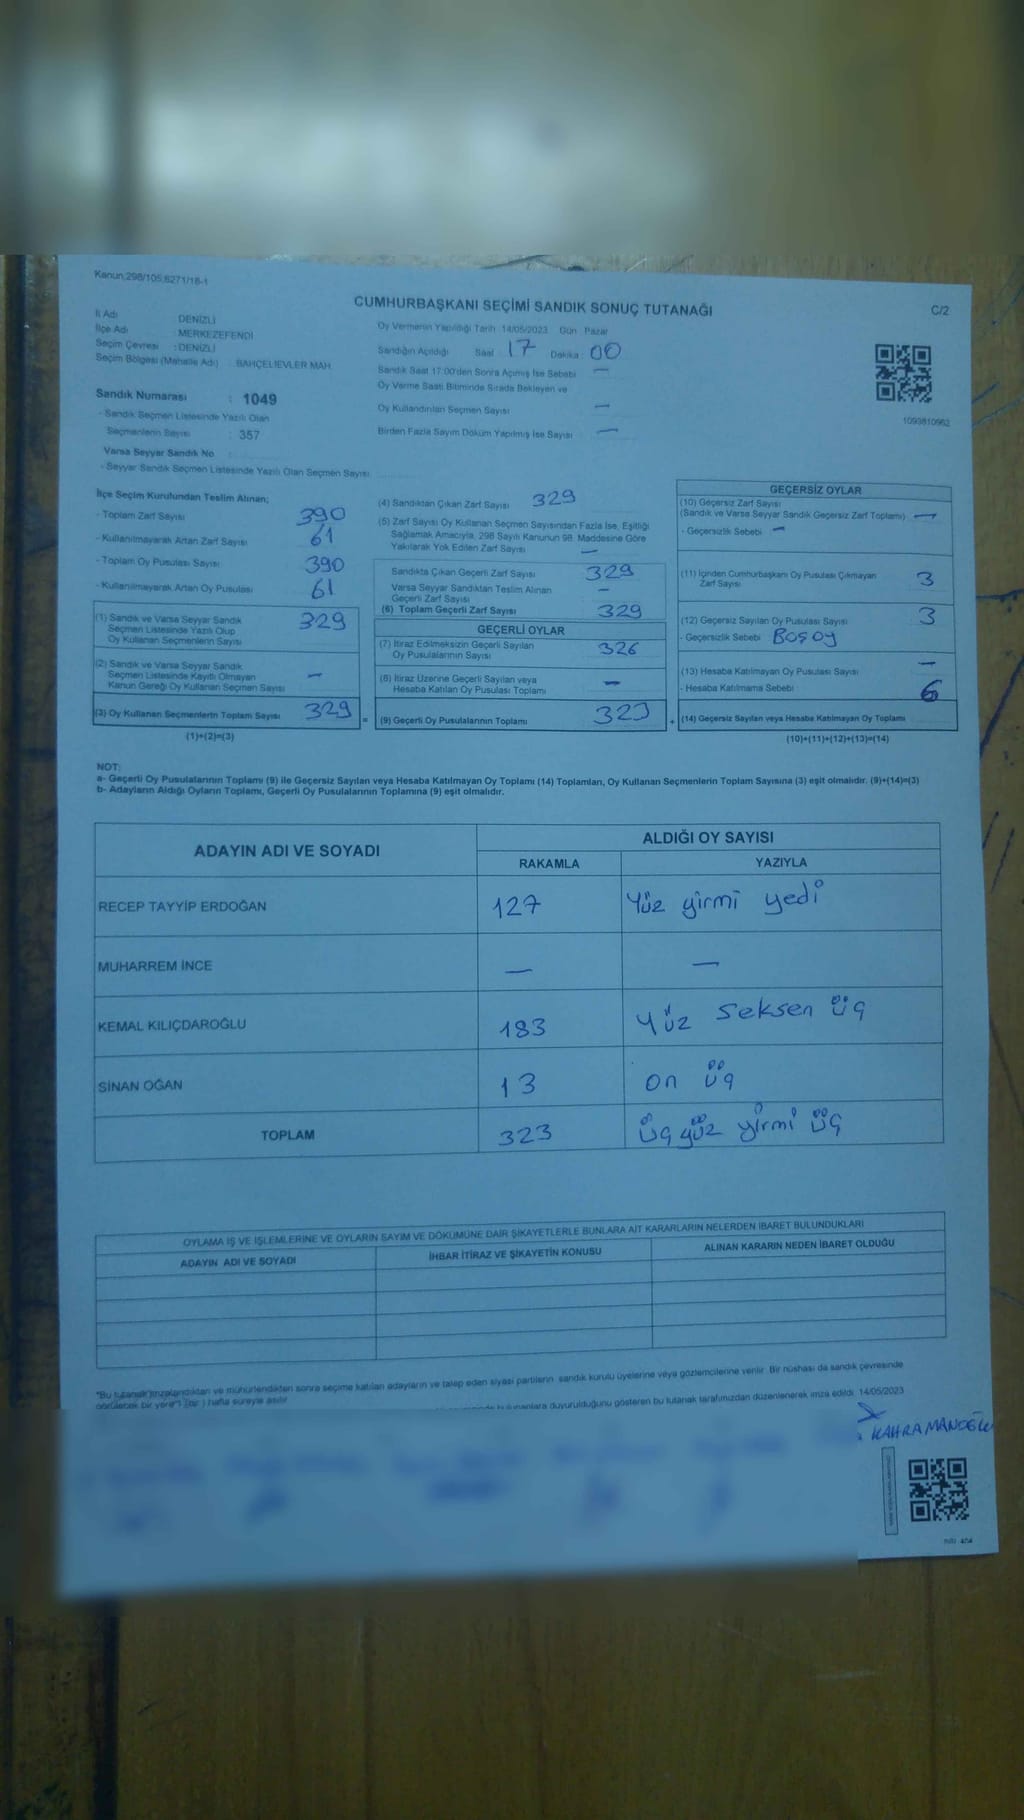 Kanun:298/105,6271/18-1
CUMHURBAŞKANI SEÇİMİ SANDIK SONUÇ TUTANAĞI
C/2
İl Adı : DENİZLİ
İlçe Adı : MERKEZEFENDİ
Seçim Çevresi : DENİZLİ
Seçim Bölgesi (Mahalle Adı) : BAHÇELİEVLER MAH.
Oy Vermenin Yapıldığı Tarih :14/05/2023 Gün : Pazar
Sandığın Açıldığı Saat : 17 Dakika : 00
Sandık Saat 17:00'den Sonra Açılmış İse Sebebi —
Oy Verme Saati Bitiminde Sırada Bekleyen ve
Oy Kullandırılan Seçmen Sayısı —
Birden Fazla Sayım Döküm Yapılmış İse Sayısı —
1093810962
Sandık Numarası : 1049
- Sandık Seçmen Listesinde Yazılı Olan
Seçmenlerin Sayısı : 357
Varsa Seyyar Sandık No :
- Seyyar Sandık Seçmen Listesinde Yazılı Olan Seçmen Sayısı
İlçe Seçim Kurulundan Teslim Alınan;
- Toplam Zarf Sayısı 390
- Kullanılmayarak Artan Zarf Sayısı 61
- Toplam Oy Pusulası Sayısı 390
- Kullanılmayarak Artan Oy Pusulası 61
(1) Sandık ve Varsa Seyyar Sandık
Seçmen Listesinde Yazılı Olup
Oy Kullanan Seçmenlerin Sayısı 329
(2) Sandık ve Varsa Seyyar Sandık
Seçmen Listesinde Kayıtlı Olmayan
Kanun Gereği Oy Kullanan Seçmen Sayısı —
(3) Oy Kullanan Seçmenlerin Toplam Sayısı 329 =
(1)+(2)=(3)
(4) Sandıktan Çıkan Zarf Sayısı 329
(5) Zarf Sayısı Oy Kullanan Seçmen Sayısından Fazla İse, Eşitliği
Sağlamak Amacıyla, 298 Sayılı Kanunun 98. Maddesine Göre
Yakılarak Yok Edilen Zarf Sayısı —
Sandıkta Çıkan Geçerli Zarf Sayısı 329
Varsa Seyyar Sandıktan Teslim Alınan
Geçerli Zarf Sayısı —
(6) Toplam Geçerli Zarf Sayısı 329
GEÇERLİ OYLAR
(7) İtiraz Edilmeksizin Geçerli Sayılan
Oy Pusulalarının Sayısı 326
(8) İtiraz Üzerine Geçerli Sayılan veya
Hesaba Katılan Oy Pusulası Toplamı —
(9) Geçerli Oy Pusulalarının Toplamı 323 +
GEÇERSİZ OYLAR
(10) Geçersiz Zarf Sayısı
(Sandık ve Varsa Seyyar Sandık Geçersiz Zarf Toplamı) —
- Geçersizlik Sebebi —
(11) İçinden Cumhurbaşkanı Oy Pusulası Çıkmayan
Zarf Sayısı 3
(12) Geçersiz Sayılan Oy Pusulası Sayısı 3
- Geçersizlik Sebebi BOŞ OY
(13) Hesaba Katılmayan Oy Pusulası Sayısı —
- Hesaba Katılmama Sebebi
(14) Geçersiz Sayılan veya Hesaba Katılmayan Oy Toplamı 6
(10)+(11)+(12)+(13)=(14)
NOT:
a- Geçerli Oy Pusulalarının Toplamı (9) ile Geçersiz Sayılan veya Hesaba Katılmayan Oy Toplamı (14) Toplamları, Oy Kullanan Seçmenlerin Toplam Sayısına (3) eşit olmalıdır. (9)+(14)=(3)
b- Adayların Aldığı Oyların Toplamı, Geçerli Oy Pusulalarının Toplamına (9) eşit olmalıdır.
ADAYIN ADI VE SOYADI
ALDIĞI OY SAYISI
RAKAMLA YAZIYLA
RECEP TAYYİP ERDOĞAN 127 Yüz yirmi yedi
MUHARREM İNCE — —
KEMAL KILIÇDAROĞLU 183 Yüz seksen üç
SİNAN OĞAN 13 on üç
TOPLAM 323 üç yüz yirmi üç
OYLAMA İŞ VE İŞLEMLERİNE VE OYLARIN SAYIM VE DÖKÜMÜNE DAİR ŞİKAYETLERLE BUNLARA AİT KARARLARIN NELERDEN İBARET BULUNDUKLARI
ADAYIN ADI VE SOYADI İHBAR İTİRAZ VE ŞİKAYETİN KONUSU ALINAN KARARIN NEDEN İBARET OLDUĞU
"Bu tutanak imzalandıktan ve mühürlendikten sonra seçime katılan adayların ve talep eden siyasi partilerin sandık kurulu üyelerine veya gözlemcilerine verilir. Bir nüshası da sandık çevresinde
görülecek bir yere 1 (bir) hafta süreyle asılır.
duyurulduğunu gösteren bu tutanak tarafımızdan düzenlenerek imza edildi. 14/05/2023
KAHRAMANOĞLU